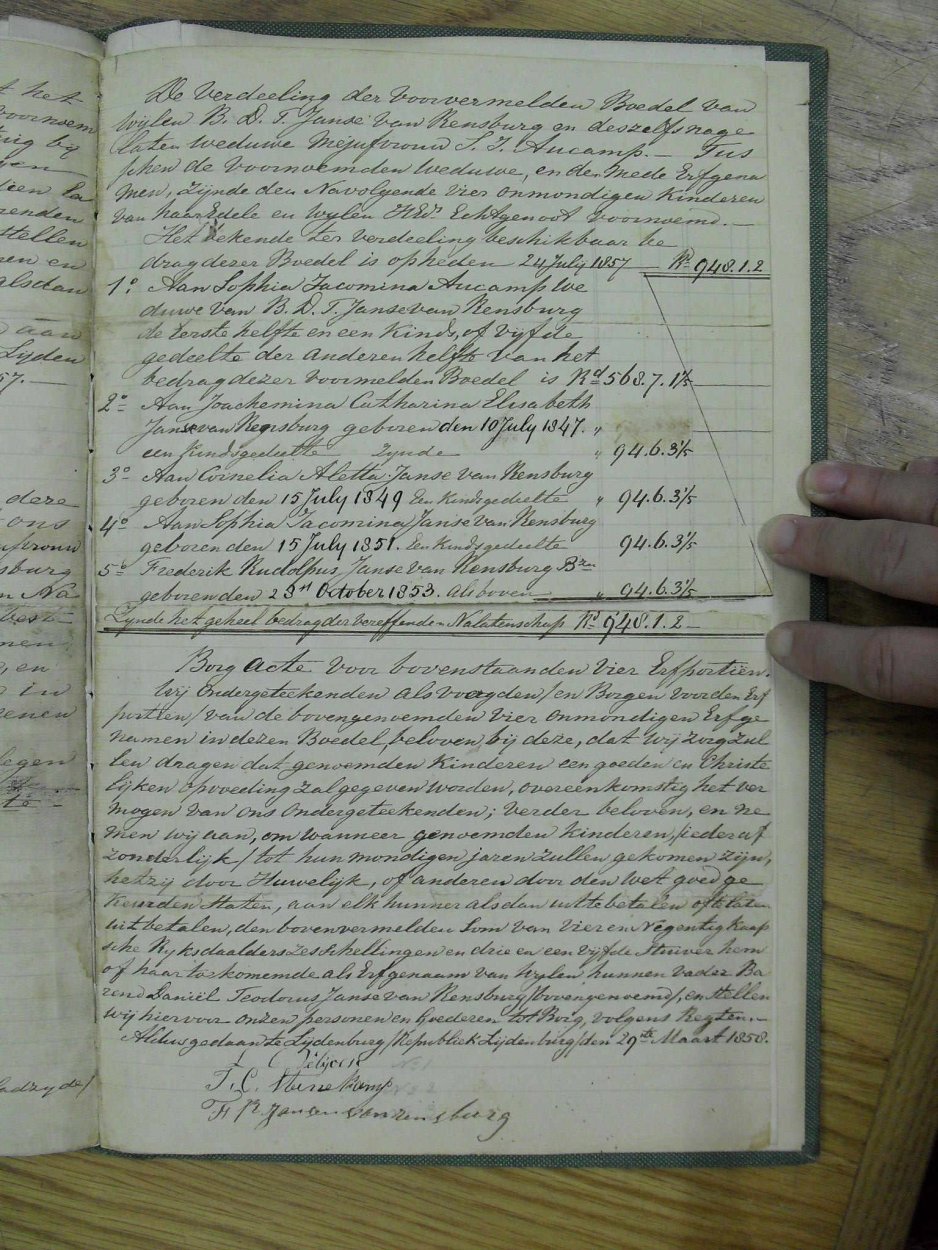 t het
voornoem
tuig bij
van
deen La
renden
stellen
ren en
alsdan
aan
Lyden
57.—
deze
ons
jufvrouw
sburg
n Na
Test-
men
, en
in
enen
legen
te-
adzyde/
De Verdeeling der Voorvermelden Boedel van
Wijlen B. D. T. Janse van Rensburg en deszelfs nage
laten Weduwe Mejufvrouw S. J. Aucamp.— Tus
schen de voornoemden Weduwe, en den Mede Erfgena
men, Zijnde den Navolgende Vier onmondigen Kinderen
van haar Edele en Wylen HEd. Echtgenoot voornoemd.—
Het bekende ter verdeeling beschikbaar be
drag dezer Boedel is op heden 24 July 1857 Rd 948.1.2
1o Aan Sophia Jacomina Aucamp We
duwe van B. D. T. Janse van Rensburg
de Eerste helfte en een Kinds, of vijfde
gedeelte der anderen helfte van het
bedrag dezer voormelden Boedel is Rd 568.7.1 1/5
2o Aan Joachemina Catharina Elisabeth
Janse van Rensburg geboren den 10 July 1847. "
een Kindsgedeelte Zynde " 94.6.3 1/5
3o Aan Cornelia Aletta Janse van Rensburg
geboren den 15 July 1849 Een Kindsgedeelte " 94.6.3 1/5
4o Aan Sophia Jacomina Janse van Rensburg
geboren den 15 July 1851. Een Kindsgedeelte 94.6.3 1/5
5o Frederik Rudolpus Janse van Rensburg B.zn
geboren den 23st October 1853. Als boven " 94.6.3 1/5
Zynde het geheel bedrag der vereffenden Nalatenschap Rd 948.1.2—
Borg Acte voor bovenstaanden Vier Erfportiën.
Wij Ondergeteekenden als voogden/ en Borgen voor den Erf
portien/ van de bovengenoemden Vier onmondigen Erfge
namen in dezen Boedel, beloven bij deze, dat Wij zorg zul
len dragen dat genoemden Kinderen een goeden en Christe
lijken opvoeding zal gegeven worden, overeenkomstig het ver
mogen van ons ondergeteekenden; verder beloven, en ne
men wij aan, om wanneer genoemden kinderen, /ieder af
zonderlijk/ tot hun mondigen jaren zullen gekomen zijn,
hetzij door Huwelijk, of anderen door den Wet goedge
keurden Staten, aan elk hunner alsdan uit te betalen of te laten
uitbetalen, den bovenvermelden Som van Vier en Negentig Kaap
sche Ryksdaalders Zes schellingen en drie en een vijfde Stuiver hem
of haar toekomende als Erfgenaam van Wylen hunnen vader Ba
rend Daniël Teodorus Janse van Rensburg/ bovengenoemd/, en Stellen
wij hiervoor onzen personen en Goederen tot Borg, volgens Regten.—
Aldus gedaan te Lydenburg/ Republiek Lijdenburg/ den 29ste Maart 1858.
No 1
F. C. Stenekamp No 2
F R Jansen van rensburg